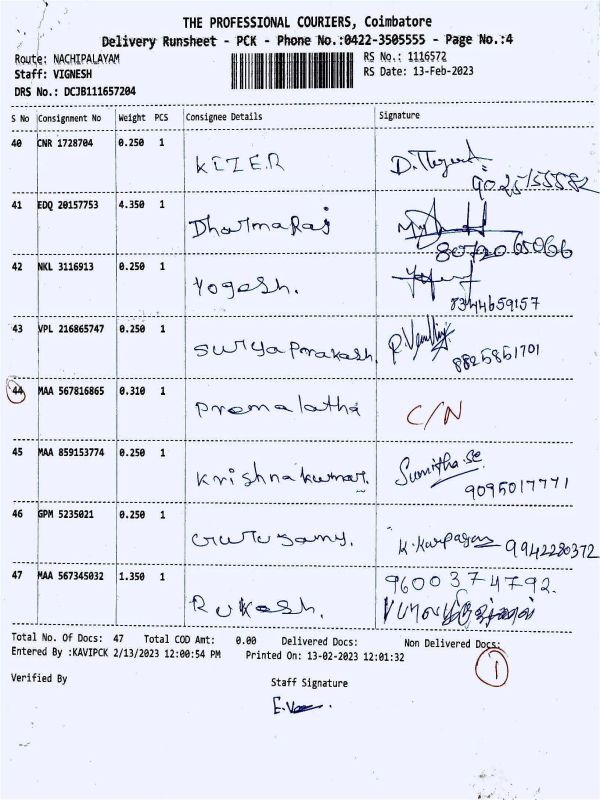 THE PROFESSIONAL COURIERS, Coimbatore
Delivery Runsheet - PCK - Phone No.:0422-3505555 - Page No.:4
Route: NACHIPALAYAM RS No.: 1116572
Staff: VIGNESH RS Date: 13-Feb-2023
DRS No.: DCJB111657204
S No Consignment No Weight PCS Consignee Details Signature
40 CNR 1728704 0.250 1
KIZER
41 EDQ 20157753 4.350 1
DharmaRaj
8072065066
42 NKL 3116913 0.250 1
Yogesh.
8344659157
43 VPL 216865747 0.250 1
Suryaprakash.
8825851701
44 MAA 567816865 0.310 1
premalatha C/N
45 MAA 859153774 0.250 1
Krishnakumar. Sumitha.se
9095017771
46 GPM 5235021 0.250 1
Gurusamy. K.Karpagam 9942280372
47 MAA 567345032 1.350 1 9600374792.
Rukesh.
Total No. Of Docs: 47 Total COD Amt: 0.00 Delivered Docs: Non Delivered Docs:
Entered By :KAVIPCK 2/13/2023 12:00:54 PM Printed On: 13-02-2023 12:01:32
1
Verified By Staff Signature